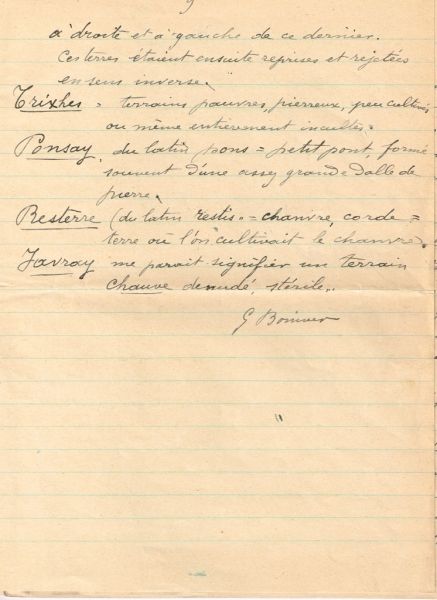 à droite et à gauche de ce dernier.
Ces terres étaient ensuite reprises et rejetées
en sens inverse.
Trixhes = terrains pauvres, pierreux, peu cultivés
ou même entièrement incultes.
Ponsay, du latin pons = petit pont, formé
souvent d'une assez grande dalle de
pierre.
Resterre (du latin restis = chanvre, corde =
terre où l'on cultivait le chanvre.
Javray me parait signifier un terrain
chauve denudé stérile..
G